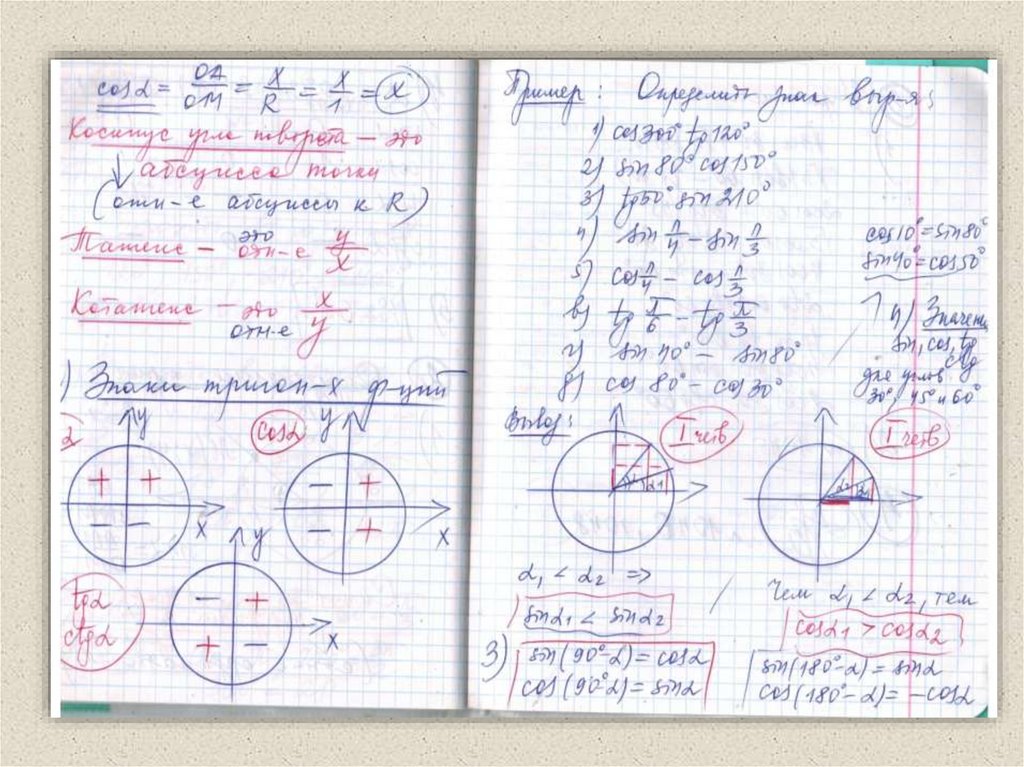 cosα = OA/OM = x/R = x/1 = x
Косинус угла поворота – это
абсцисса точки
(отн-е абсциссы к R)
Тангенс – это отн-е y/x
Котангенс – это отн-е x/y
) Знаки тригон-х ф-ций
α
y
+ +
– –
x
cosα
y
– +
– +
x
tgα
ctgα
y
– +
+ –
x
Пример: Определить знак выр-я:
1) cos300° tg120°
2) sin80° cos150°
3) tg50° sin210°
4) sin π/4 – sin π/3
5) cos π/4 – cos π/3
в) tg π/6 – tg π/3
г) sin 40° – sin 80°
д) cos 80° – cos 30°
cos10° = sin80°
sin40° = cos50°
4) Значени
sin, cos, tg
ctg
для углов
30°, 45° и 60°
Вывод:
I четв
α2 α1
I четв
α2 α1
α1 < α2 =>
sinα1 < sinα2
Чем α1 < α2, тем
cosα1 > cosα2
3) sin(90°-α) = cosα
cos(90°-α) = sinα
sin(180°-α) = sinα
cos(180°-α) = –cosα